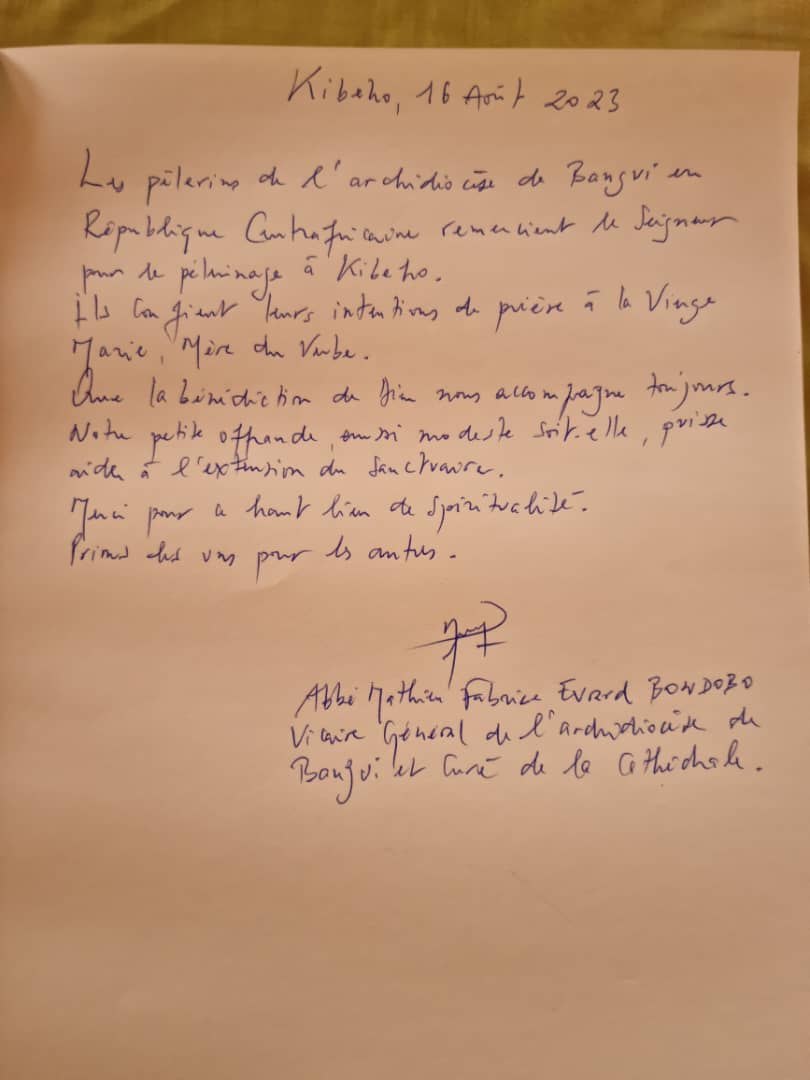 Kibeho, 16 Août 2023
Les pèlerins de l'archidiocèse de Bangui en
République Centrafricaine remercient le Seigneur
pour le pèlerinage à Kibeho.
Ils confient leurs intentions de prière à la Vierge
Marie, Mère du Verbe.
Que la bénédiction de Dieu nous accompagne toujours.
Notre petite offrande, aussi modeste soit-elle, puisse
aider à l'extension du Sanctuaire.
Merci pour ce haut lieu de spiritualité.
Prions les uns pour les autres.
Abbé Mathieu Fabrice Evrard BONDOBO
Vicaire Général de l'archidiocèse de
Bangui et Curé de la Cathédrale.